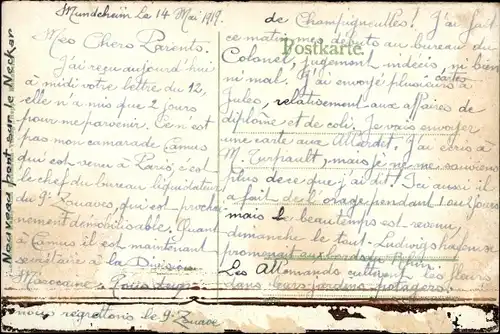 Mundenheim le 14 Mai 1919.
Mes Chers Parents.
J'ai reçu aujourd'hui
à midi votre lettre du 12,
elle n'a mis que 2 jours
pour me parvenir. Ce n'est
pas mon camarade Camus
qui est venu à Paris, c'est
le chef du bureau liquidateur
du 9e Zouaves, qui est proche
nement démobilisable. Quant
à Camus il est maintenant
secrétaire à la Division
Marocaine.
nous regrettons le 9e Zouave
Nouveau pont sur le Neckar
Postkarte.
de Champigneulles! J'ai fait
ce matin mes débuts au bureau du
Colonel, jugement indécis, ni bien
ni mal. J'ai envoyé plusieurs cartes à
Jules, relativement aux affaires de
diplôme et de coli. Je vais envoyer
une carte aux
M. mais je ne me souviens
plus de ce que j'ai dit! Ici aussi il
a fait de l'orage pendant 1 ou 2 jours
mais le beau temps est revenu,
dimanche le tout Ludwigshafen se
promenait aux bords du Rhin.
Les Allemands cultivent les fleurs
dans leurs jardins potagers!